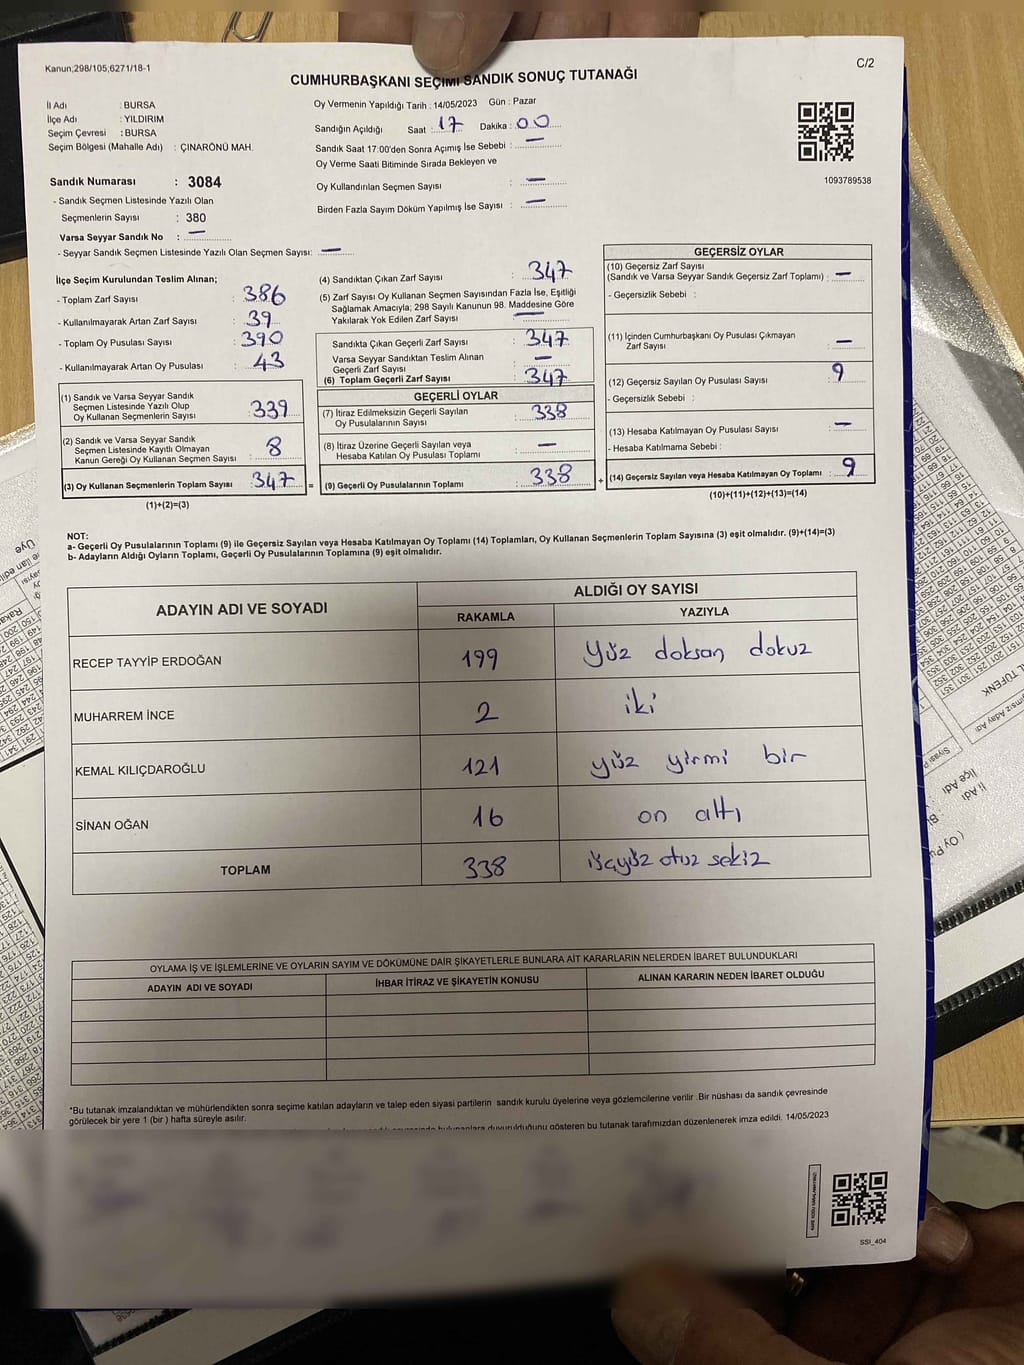 Kanun;298/105;6271/18-1
C/2
CUMHURBAŞKANI SEÇİMİ SANDIK SONUÇ TUTANAĞI
İl Adı : BURSA
İlçe Adı : YILDIRIM
Seçim Çevresi : BURSA
Seçim Bölgesi (Mahalle Adı) : ÇINARÖNÜ MAH.
Sandık Numarası : 3084
- Sandık Seçmen Listesinde Yazılı Olan
Seçmenlerin Sayısı : 380
Varsa Seyyar Sandık No : —
- Seyyar Sandık Seçmen Listesinde Yazılı Olan Seçmen Sayısı: —
Oy Vermenin Yapıldığı Tarih : 14/05/2023 Gün : Pazar
Sandığın Açıldığı Saat : 17 Dakika : 00
Sandık Saat 17:00'den Sonra Açımış İse Sebebi : —
Oy Verme Saati Bitiminde Sırada Bekleyen ve
Oy Kullandırılan Seçmen Sayısı : —
Birden Fazla Sayım Döküm Yapılmış İse Sayısı : —
1093789538
İlçe Seçim Kurulundan Teslim Alınan;
- Toplam Zarf Sayısı : 386
- Kullanılmayarak Artan Zarf Sayısı : 39
- Toplam Oy Pusulası Sayısı : 390
- Kullanılmayarak Artan Oy Pusulası : 43
(1) Sandık ve Varsa Seyyar Sandık
Seçmen Listesinde Yazılı Olup
Oy Kullanan Seçmenlerin Sayısı : 339
(2) Sandık ve Varsa Seyyar Sandık
Seçmen Listesinde Kayıtlı Olmayan
Kanun Gereği Oy Kullanan Seçmen Sayısı : 8
(3) Oy Kullanan Seçmenlerin Toplam Sayısı : 347 =
(1)+(2)=(3)
(4) Sandıktan Çıkan Zarf Sayısı : 347
(5) Zarf Sayısı Oy Kullanan Seçmen Sayısından Fazla İse, Eşitliği
Sağlamak Amacıyla; 298 Sayılı Kanunun 98. Maddesine Göre
Yakılarak Yok Edilen Zarf Sayısı —
Sandıkta Çıkan Geçerli Zarf Sayısı : 347
Varsa Seyyar Sandıktan Teslim Alınan
Geçerli Zarf Sayısı : —
(6) Toplam Geçerli Zarf Sayısı : 347
GEÇERLİ OYLAR
(7) İtiraz Edilmeksizin Geçerli Sayılan
Oy Pusulalarının Sayısı : 338
(8) İtiraz Üzerine Geçerli Sayılan veya
Hesaba Katılan Oy Pusulası Toplamı : —
(9) Geçerli Oy Pusulalarının Toplamı : 338 +
GEÇERSİZ OYLAR
(10) Geçersiz Zarf Sayısı
(Sandık ve Varsa Seyyar Sandık Geçersiz Zarf Toplamı) : —
- Geçersizlik Sebebi :
(11) İçinden Cumhurbaşkanı Oy Pusulası Çıkmayan
Zarf Sayısı : —
(12) Geçersiz Sayılan Oy Pusulası Sayısı : 9
- Geçersizlik Sebebi :
(13) Hesaba Katılmayan Oy Pusulası Sayısı : —
- Hesaba Katılmama Sebebi :
(14) Geçersiz Sayılan veya Hesaba Katılmayan Oy Toplamı : 9
(10)+(11)+(12)+(13)=(14)
NOT:
a- Geçerli Oy Pusulalarının Toplamı (9) ile Geçersiz Sayılan veya Hesaba Katılmayan Oy Toplamı (14) Toplamları, Oy Kullanan Seçmenlerin Toplam Sayısına (3) eşit olmalıdır. (9)+(14)=(3)
b- Adayların Aldığı Oyların Toplamı, Geçerli Oy Pusulalarının Toplamına (9) eşit olmalıdır.
ADAYIN ADI VE SOYADI ALDIĞI OY SAYISI
RAKAMLA YAZIYLA
RECEP TAYYİP ERDOĞAN 199 yüz doksan dokuz
MUHARREM İNCE 2 iki
KEMAL KILIÇDAROĞLU 121 yüz yirmi bir
SİNAN OĞAN 16 on altı
TOPLAM 338 üçyüz otuz sekiz
OYLAMA İŞ VE İŞLEMLERİNE VE OYLARIN SAYIM VE DÖKÜMÜNE DAİR ŞİKAYETLERLE BUNLARA AİT KARARLARIN NELERDEN İBARET BULUNDUKLARI
ADAYIN ADI VE SOYADI İHBAR İTİRAZ VE ŞİKAYETİN KONUSU ALINAN KARARIN NEDEN İBARET OLDUĞU
*Bu tutanak imzalandıktan ve mühürlendikten sonra seçime katılan adayların ve talep eden siyasi partilerin sandık kurulu üyelerine veya gözlemcilerine verilir .Bir nüshası da sandık çevresinde
görülecek bir yere 1 (bir ) hafta süreyle asılır.
bulunanlara duyurulduğunu gösteren bu tutanak tarafımızdan düzenlenerek imza edildi. 14/05/2023
SSI_404